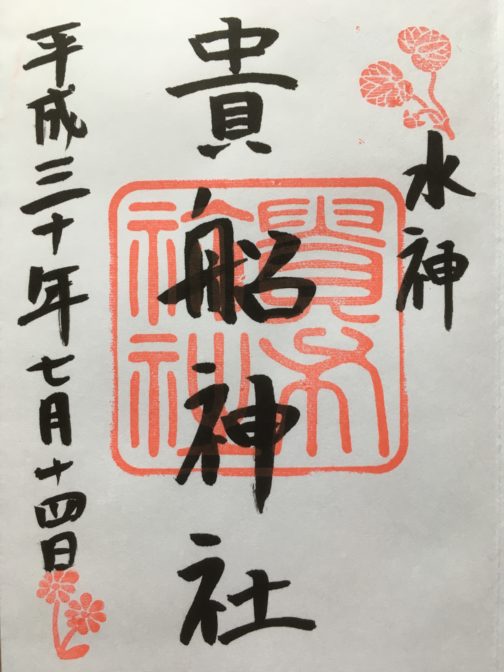 水神
貴船神社
平成三十年七月十四日